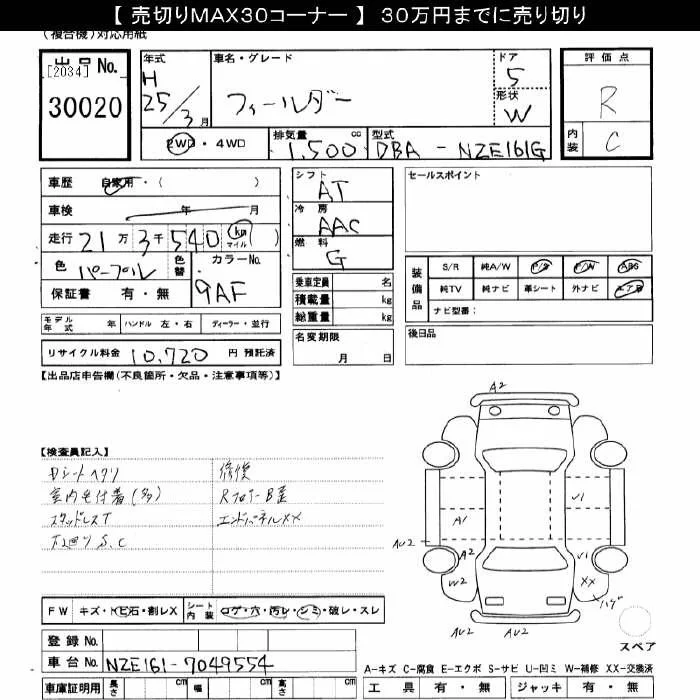 【 売切りMAX30コーナー 】 30万円までに売り切り
(複合機)対応用紙
出品No.
[2034]
30020
年式
H
25/3月
車名・グレード
フィールダー
ドア
5
形状
W
評価点
R
内装
C
2WD・4WD
排気量 1,500 cc
型式 DBA-NZE161G
車歴 自家用・( )
車検 年 月
走行 21万3千540 km マイル ( )
色 パープル 色替
カラーNo. 9AF
保証書 有・無
シフト AT
冷房 AAC
燃料 G
乗車定員 名
積載量 kg
総重量 kg
名変期限
月 日
セールスポイント
装備品
S/R 純A/W P/S P/W ABS
純TV 純ナビ 革シート 外ナビ エアB
ナビ型番:
後日品
モデル年式 年 ハンドル 左・右 ディーラー・並行
リサイクル料金 10,720 円 預託済
【出品店申告欄(不良箇所・欠品・注意事項等)】
【検査員記入】
Dシートヘタリ
室内毛付着(多)
スタッドレスT
下廻りS.C
修復
RフロアB歪
エンドパネルXX
FW キズ・ヒビ石・割レX
シート内装 コゲ・穴・汚レ・シミ・破レ・スレ
登録No.
車台No. NZE161-7049554
車庫証明用 長さ cm 幅 cm 高さ cm
A2
A1
U1
AU2
A2
U1
W2
XX
ハゲ
AU2
AU2
スペア
A-キズ C-腐食 E-エクボ S-サビ U-凹ミ W-補修 XX-交換済
工具 有・無 ジャッキ 有・無